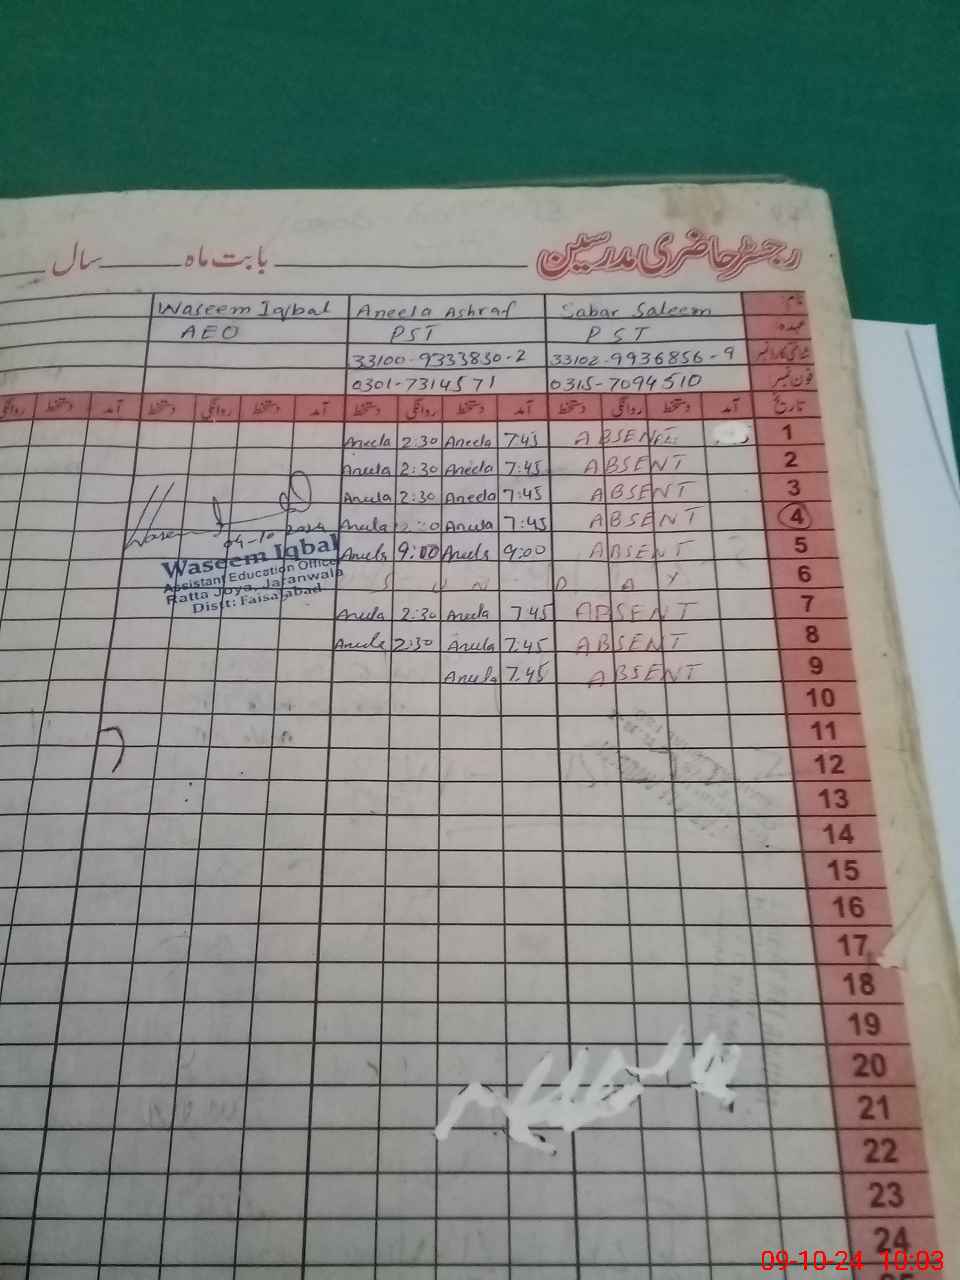 رجسٹر حاضری مدرسین بابت ماہ سال
نام: Sabar Saleem Aneela Ashraf Waseem Iqbal
عہدہ: PST PST AEO
شناختی کارڈ نمبر 33102-9936856-9 33100-9333830-2
فون نمبر 0315-7094510 0301-7314571
تاریخ آمد دستخط روانگی دستخط آمد دستخط روانگی دستخط آمد دستخط روانگی دستخط آمد دستخط روانگی
1 ABSENT 7:45 Aneela 2:30 Aneela
2 ABSENT 7:45 Aneela 2:30 Aneela
3 ABSENT 7:45 Aneela 2:30 Aneela
4 ABSENT 7:45 Aneela 2:30 Aneela
5 ABSENT 9:00 Aneela 9:00 Aneela
6 SUNDAY
7 ABSENT 7:45 Aneela 2:30 Aneela
8 ABSENT 7:45 Aneela 2:30 Aneela
9 ABSENT 7:45 Aneela
10
11
12
13
14
15
16
17
18
19
20
21
22
23
24
04-10-2024
Waseem Iqbal
Assistant Education Officer
Ratta Joya, Jaranwala
Distt: Faisalabad
09-10-24 10:03